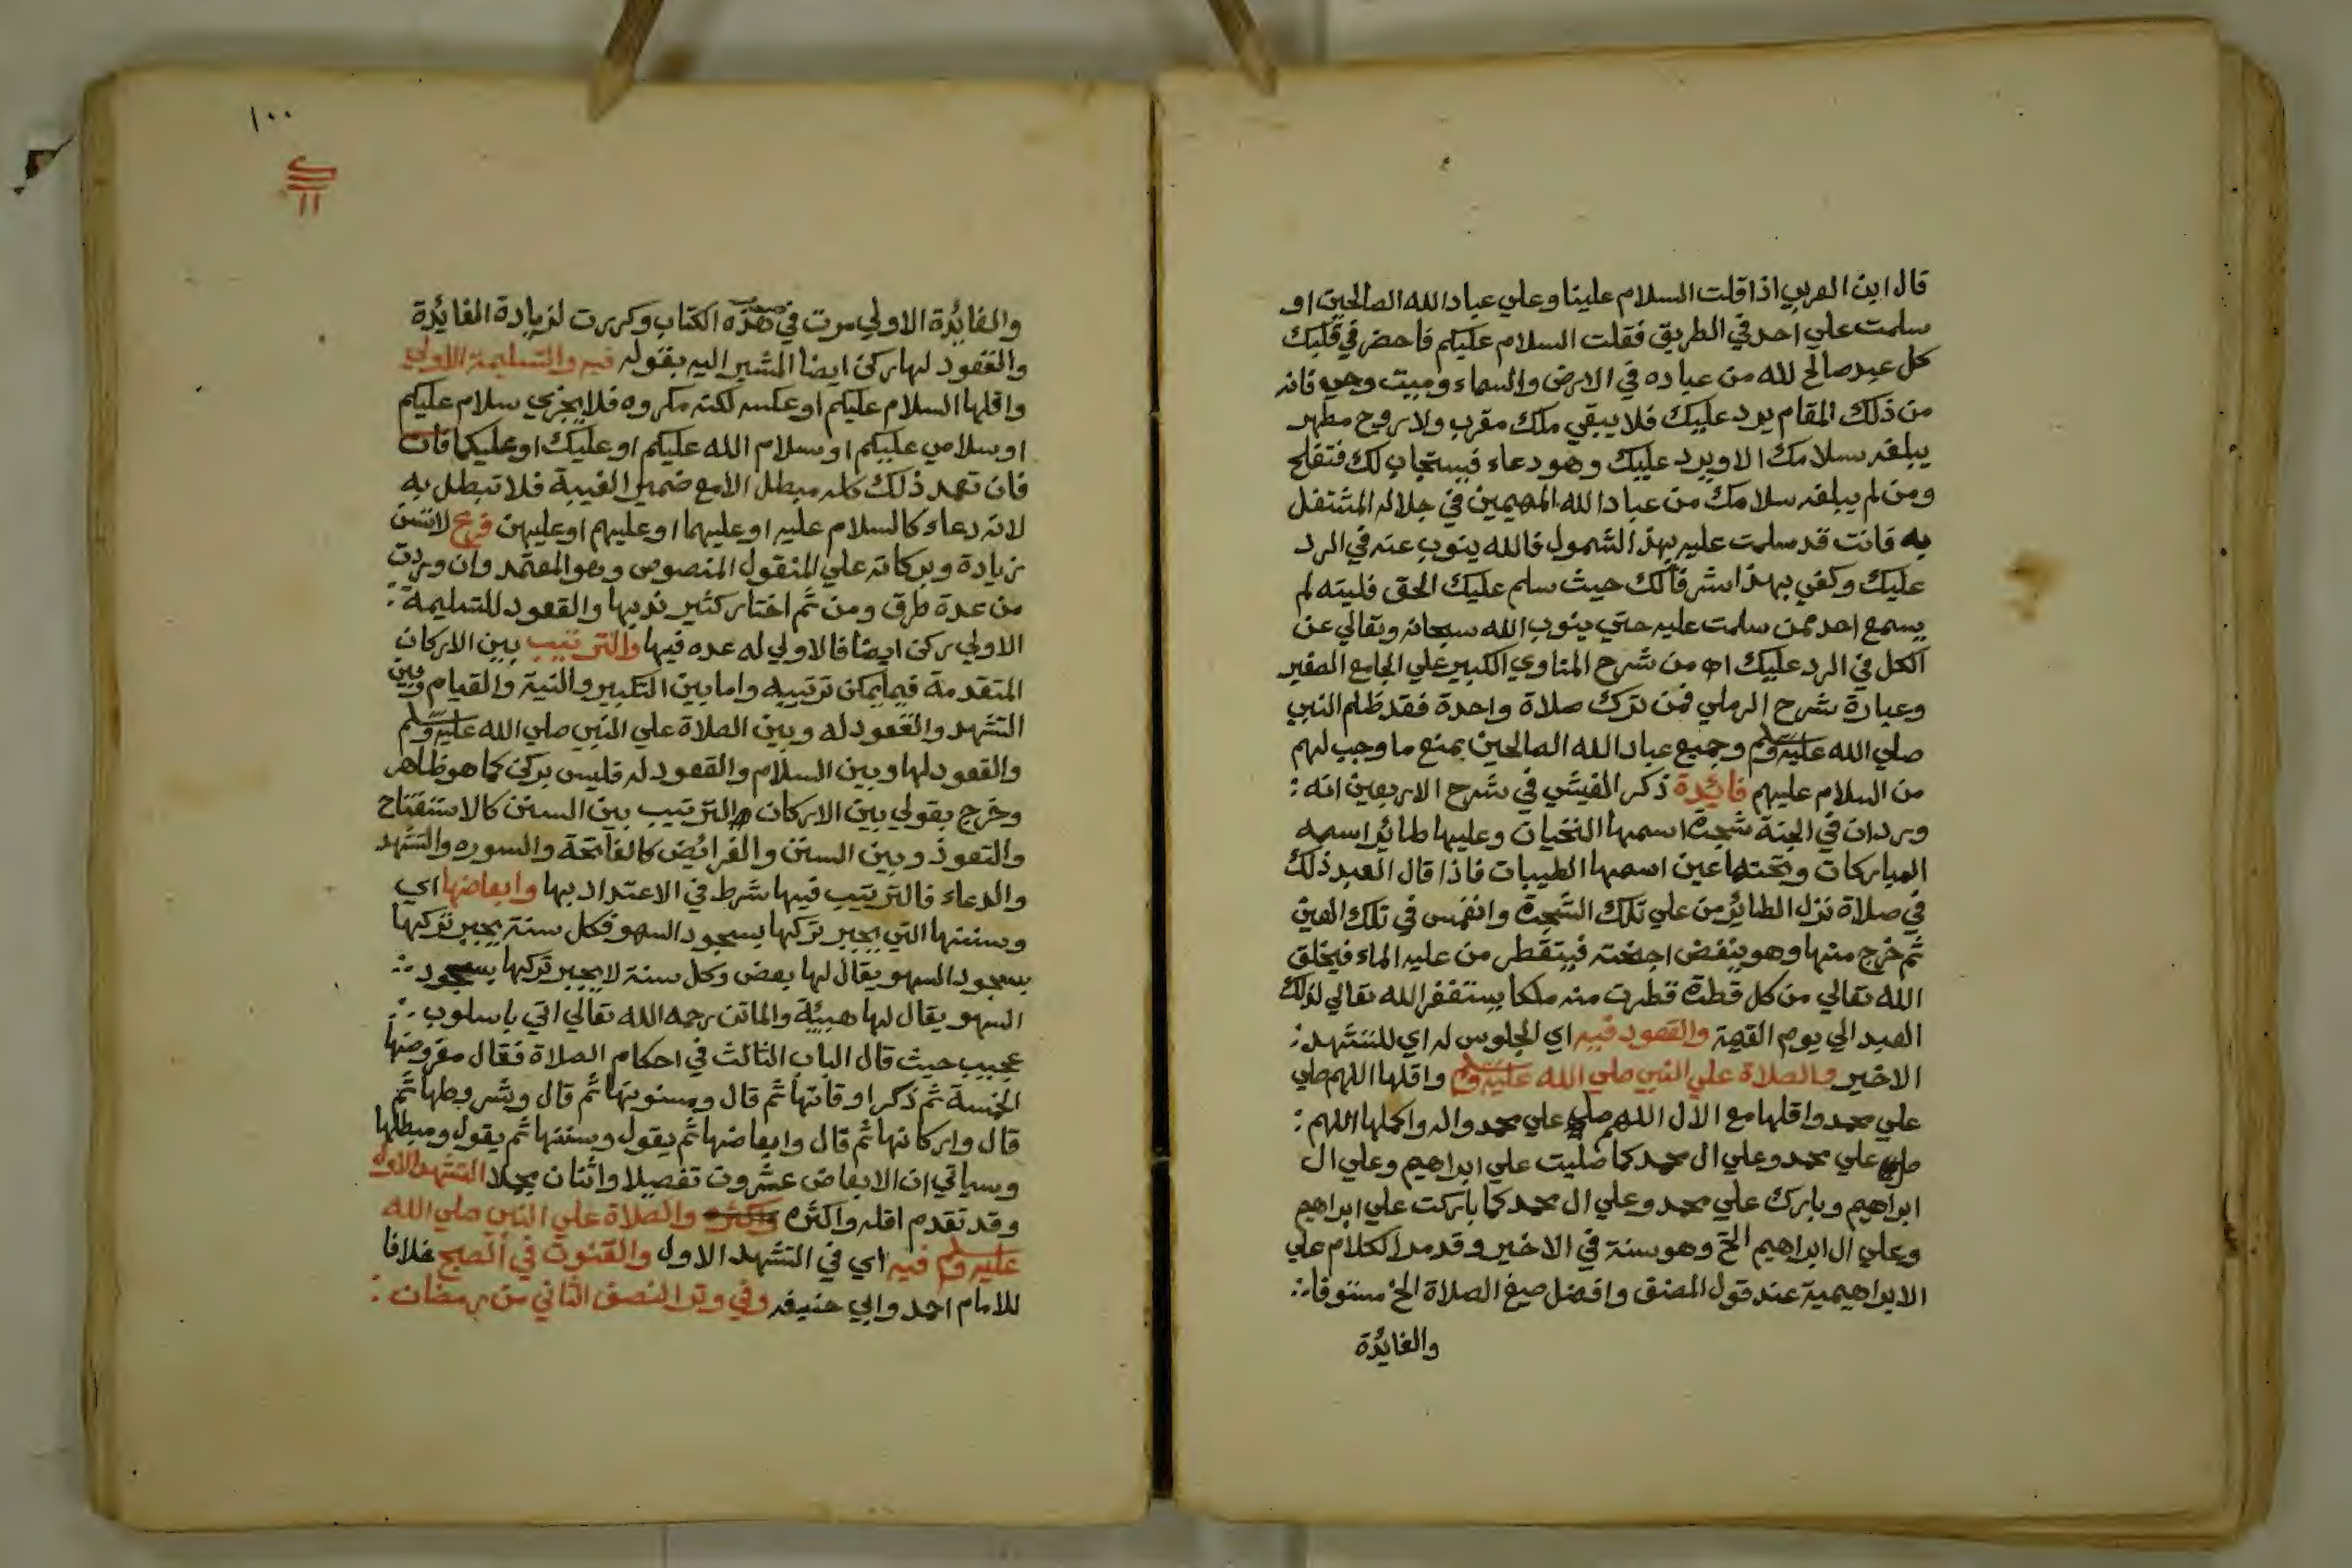 قال ابن العربي اذا قلت السلام علينا وعلي عباد الله الصالحين او
سلمت علي احد في الطريق فقلت السلام عليكم فاحضر في قلبك
كل عبد صالح لله من عباده في الارض والسماء وميت وحي فانه
من ذلك المقام يرد عليك فلا يبقي ملك مقرب ولا روح مطهر
يبلغه سلامك الا ويرد عليك وهو دعاء فيستجاب لك فتفلح
ومن لم يبلغه سلامك من عباد الله المهيمين في جلاله المشتغل
به فانت قد سلمت عليه بهذا الشمول فالله ينوب عنه في الرد
عليك وكفي بهذا شرفا لك حيث سلم عليك الحق فليته لم
يسمع احد ممن سلمت عليه حتي ينوب الله سبحانه وتعالي عن
الكل في الرد عليك اه من شرح المناوي الكبير علي الجامع الصغير
وعبارة شرح الرملي فمن ترك صلاة واحدة فقد ظلم النبي
صلي الله عليه وسلم وجميع عباد الله الصالحين بمنع ما وجب لهم
من السلام عليهم فائدة ذكر الفيشي في شرح الاربعين انه :
ورد ان في الجنة شجرة اسمها التحيات وعليها طائر اسمه
المباركات وتحتها عين اسمها الطيبات فاذا قال العبد ذلك
في صلاة نزل الطائر من علي تلك الشجرة وانغمس في تلك العين
ثم خرج منها وهو ينفض اجنحته فيتقطر من عليه الماء فيخلق
الله تعالي من كل قطرة قطرت منه ملكا يستغفر الله تعالي لذلك
العبد الي يوم القيمة والقعود فيه اي الجلوس له اي للتشهد :
الاخير والصلاة علي النبي صلي الله عليه وسلم واقلها اللهم صلي
علي محمد واقلها مع الال اللهم صلي علي محمد واله واكملها اللهم :
صلي علي محمد وعلي ال محمد كما صليت علي ابراهيم وعلي ال
ابراهيم وبارك علي محمد وعلي ال محمد كما باركت علي ابراهيم
وعلي ال ابراهيم الخ وهو سنة في الاخير وقد مر الكلام علي
الابراهيمية عند قول المصنف وافضل صيغ الصلاة الخ مستوفا :
والفايدة
١٠٠
١١
والفايدة الاولي مرت في هذه الكتاب وكررت لزيادة الفايدة
والقعود لها ركن ايضا المشير اليه بقوله فيه والتسليمة الاولي
واقلها السلام عليكم او عكسه لكنه مكروه فلا يجزي سلام عليكم
او سلامي عليكم او سلام الله عليكم او عليك او عليكما فان
فان تعمد ذلك كله مبطل الا مع ضمير الغيبة فلا تبطل به
لانه دعاء كالسلام عليه او عليهما او عليهم او عليهن فرع لا تسن
زيادة وبركاته علي المنقول المنصوص وهو المعتمد وان وردت
من عدة طرق ومن ثم اختار كثير ندبها والقعود للتسليمة :
الاولي ركن ايضا فالاولي له عده فيها والترتيب بين الاركان
المتقدمة فيما يمكن ترتيبه واما بين التكبير والنية والقيام وبين
التشهد والقعود له وبين الصلاة علي النبي صلي الله عليه وسلم
والقعود لها وبين السلام والقعود له فليس بركن كما هو ظاهر
وخرج بقولي بين الاركان والترتيب بين السنن كالاستفتاح
والتعوذ وبين السنن والفرائض كالفاتحة والسوره والتشهد
والدعاء فالترتيب فيها شرط في الاعتداد بها وابعاضها اي
وسننها التي يجبر تركها بسجود السهو فكل سنة يجبر تركها
بسجود السهو يقال لها بعض وكل سنة لا يجبر تركها بسجود :
السهو يقال لها هيئة والماتن رحمه الله تعالي اتي باسلوب :
عجيب حيث قال الباب الثالث في احكام الصلاة فقال مفروضها
الخمسة ثم ذكر اوقاتها ثم قال ومسنونها ثم قال وشروطها ثم
قال واركانها ثم قال وابعاضها ثم يقول وسننها ثم يقول ومبطلها
وسياتي ان الابعاض عشرون تفصيلا واثنان مجملا التشهد الاول
وقد تقدم اقله واكثره والصلاة علي النبي صلي الله
عليه وسلم فيه اي في التشهد الاول والقنوت في الصبح خلافا
للامام احمد وابي حنيفه وفي وتر النصف الثاني من رمضان :